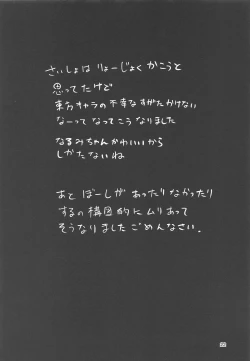 さいしょは りょーじょく かこうと
思ってたけど
東方キャラの不幸なすがたかけない
なーって なってこう なりました
なるみちゃん かわいいから
しかたないね
あと ぼーしが あったり なかったり
するの 構図的に ムリあって
そうなりました ごめんなさい。